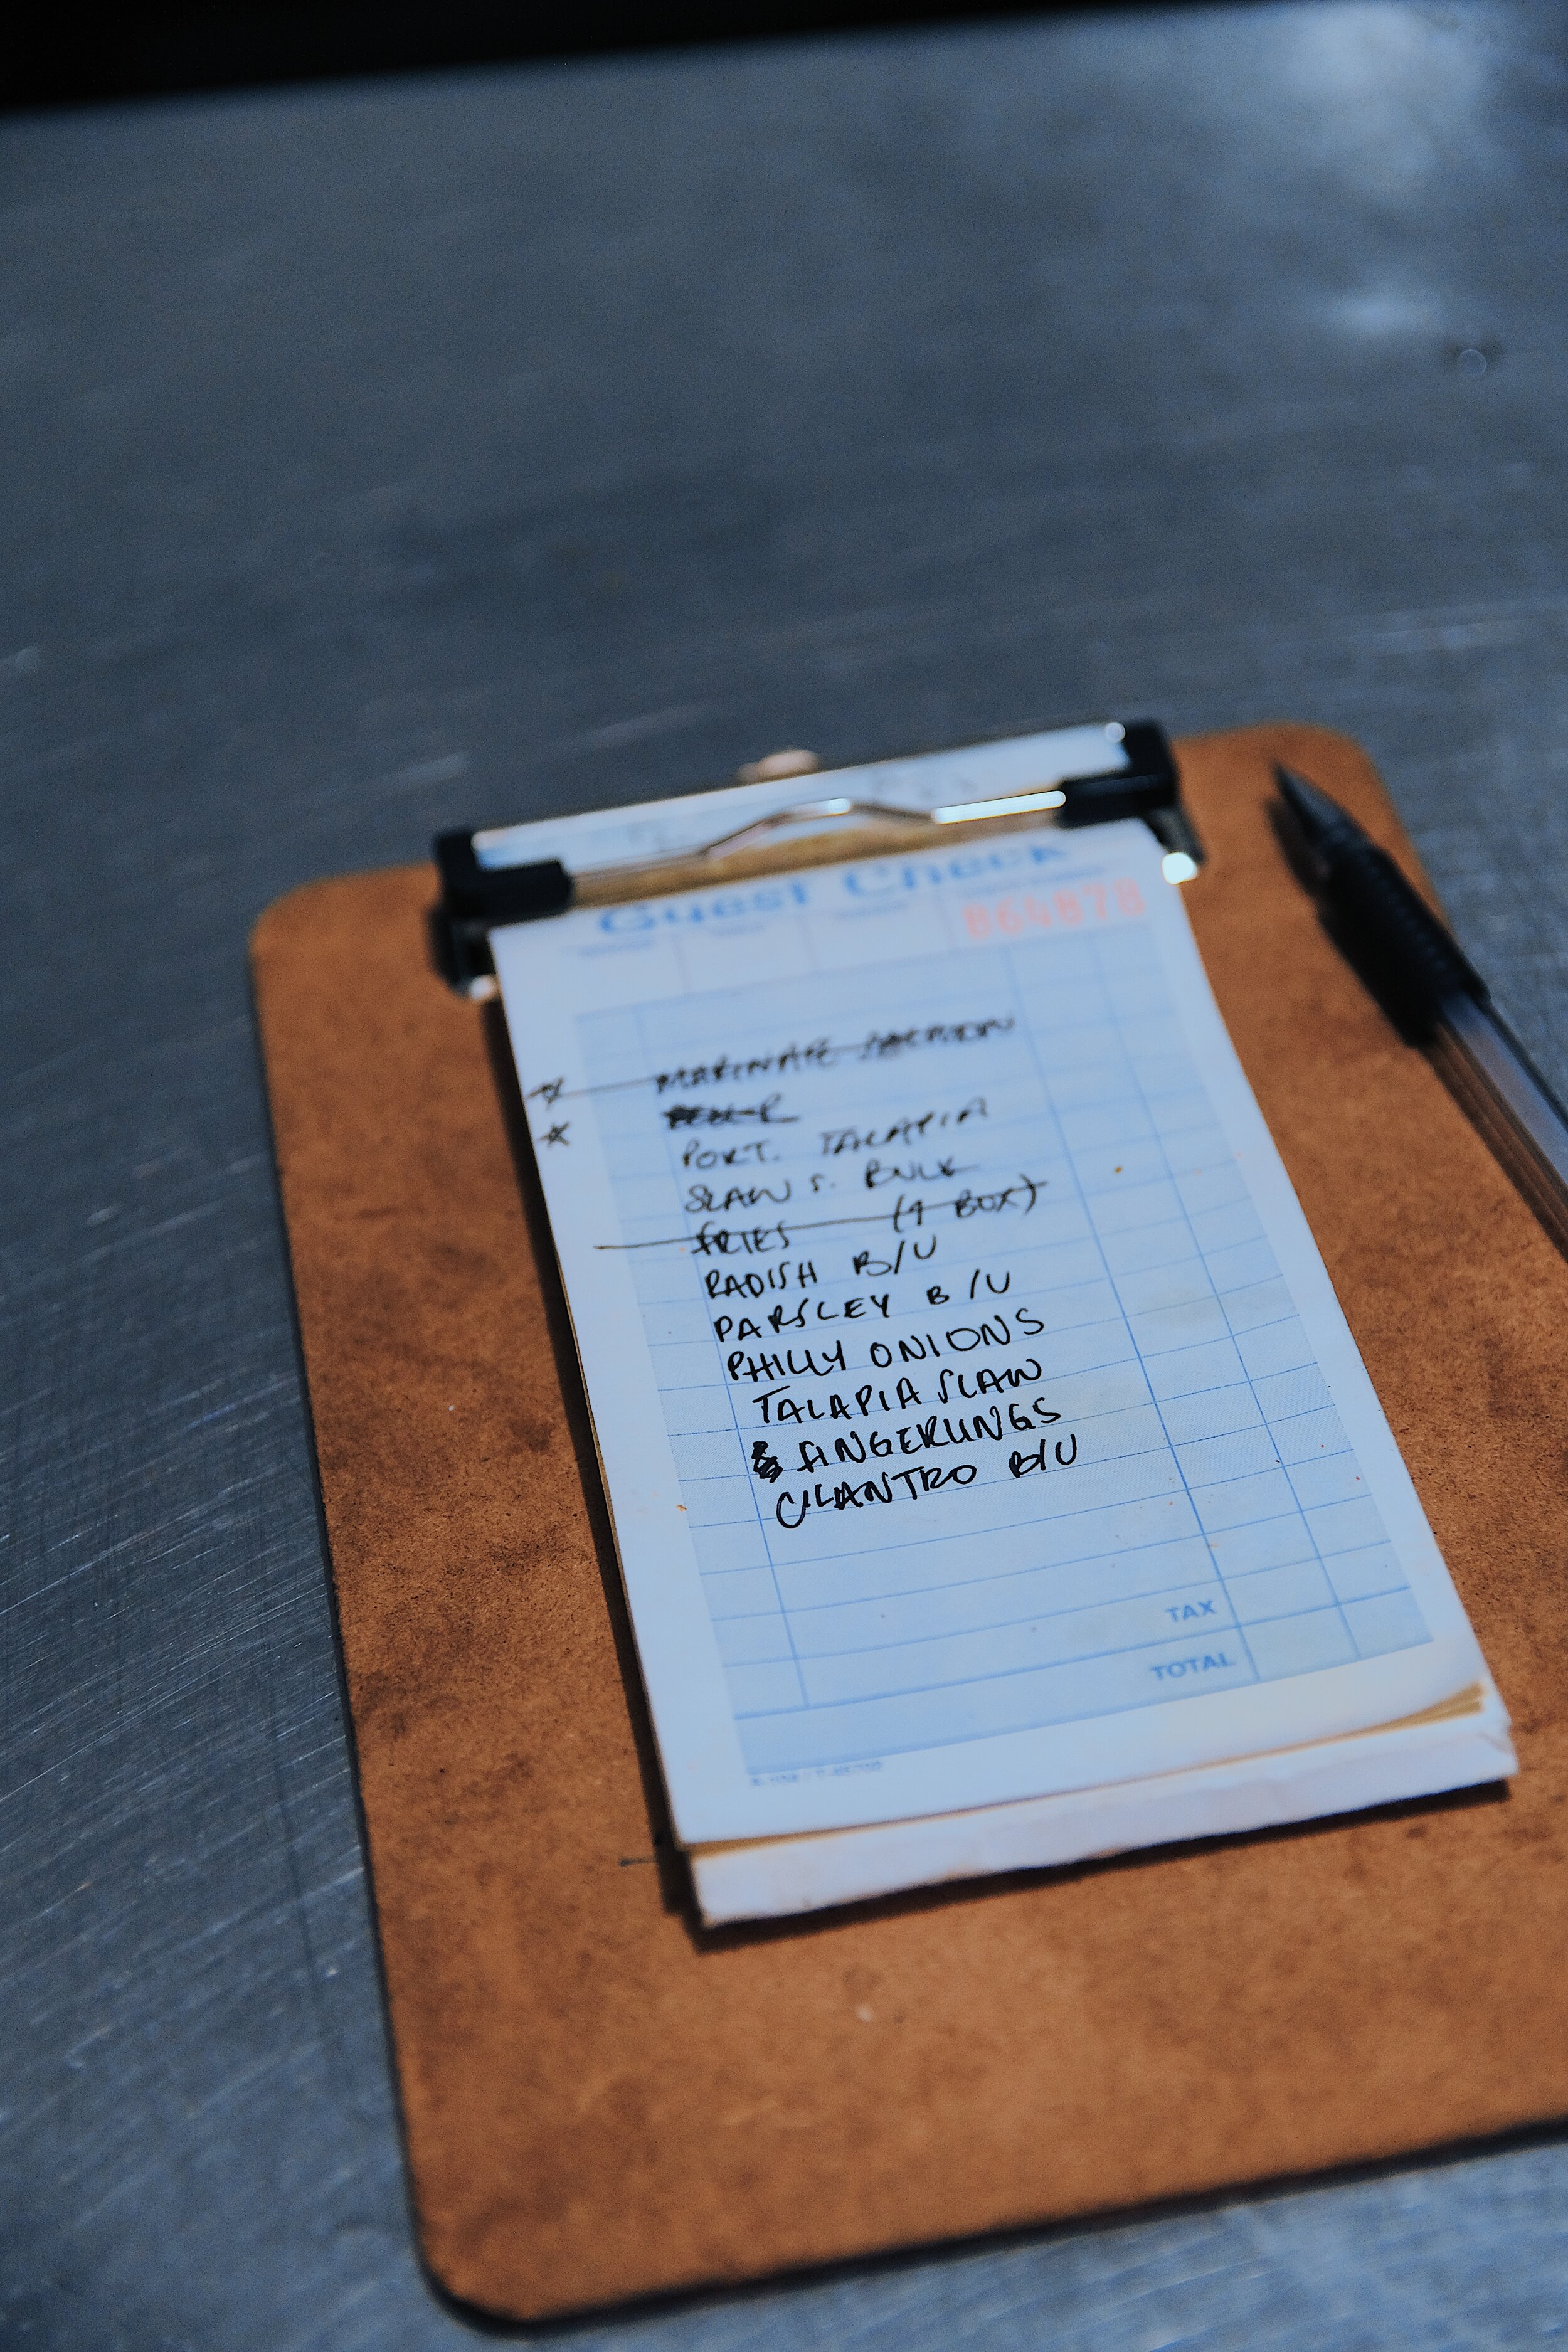 Guest Check
864878
MARINATE
PORT. TALAPIA
SLAW S. BULK
FRIES (1 BOX)
RADISH B/U
PARSLEY B/U
PHILLY ONIONS
TALAPIA SLAW
FINGERLINGS
CILANTRO B/U
TAX
TOTAL